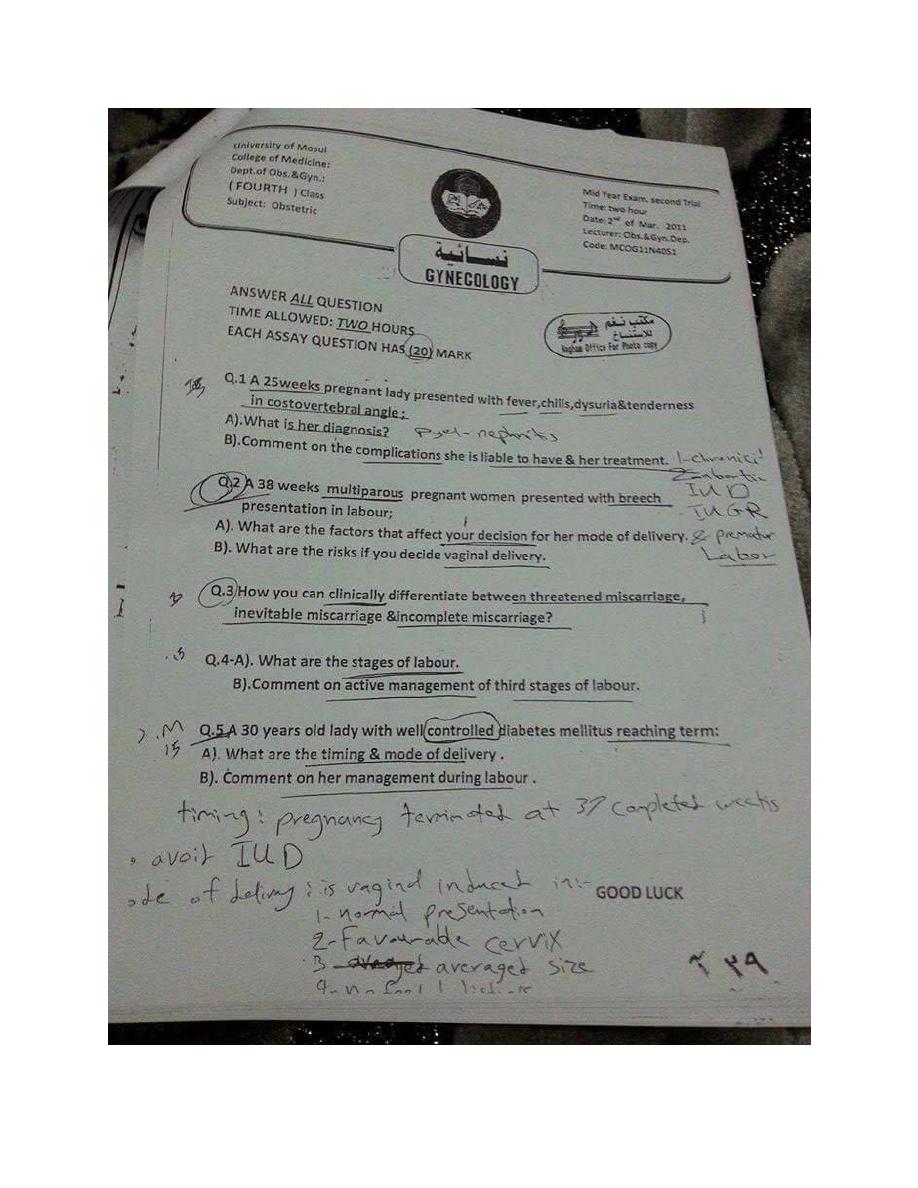 University of Mosul
College of Medicine:
Dept.of Obs.&Gyn.:
( FOURTH ) Class
Subject: Obstetric
Mid Year Exam, second Trial
Time: two hour
Date: 2nd of Mar. 2011
Lecturer: Obs.&Gyn.Dep.
Code: MCOG11N4051
نسائية
GYNECOLOGY
مكتب نغم
للاستنساخ
Nagham Office For Photo copy
ANSWER ALL QUESTION
TIME ALLOWED: TWO HOURS
EACH ASSAY QUESTION HAS (20) MARK
Q.1 A 25weeks pregnant lady presented with fever,chills,dysuria&tenderness
in costovertebral angle;
A).What is her diagnosis? pyel-nephritis
B).Comment on the complications she is liable to have & her treatment. 1-chronici
Q.2 A 38 weeks multiparous pregnant women presented with breech IUD
presentation in labour; IUGR
A). What are the factors that affect your decision for her mode of delivery. & prematur
B). What are the risks if you decide vaginal delivery. Labor
Q.3 How you can clinically differentiate between threatened miscarriage,
inevitable miscarriage &incomplete miscarriage?
Q.4-A). What are the stages of labour.
B).Comment on active management of third stages of labour.
Q.5 A 30 years old lady with well controlled diabetes mellitus reaching term:
15 A). What are the timing & mode of delivery .
B). Comment on her management during labour .
timing: pregnancy terminated at 37 completed weeks
avoit IUD
ode of delivry : is vaginal induced in:-
GOOD LUCK
1- normal presentation
2- Favourable cervix
3 averaged size
٢٣٩